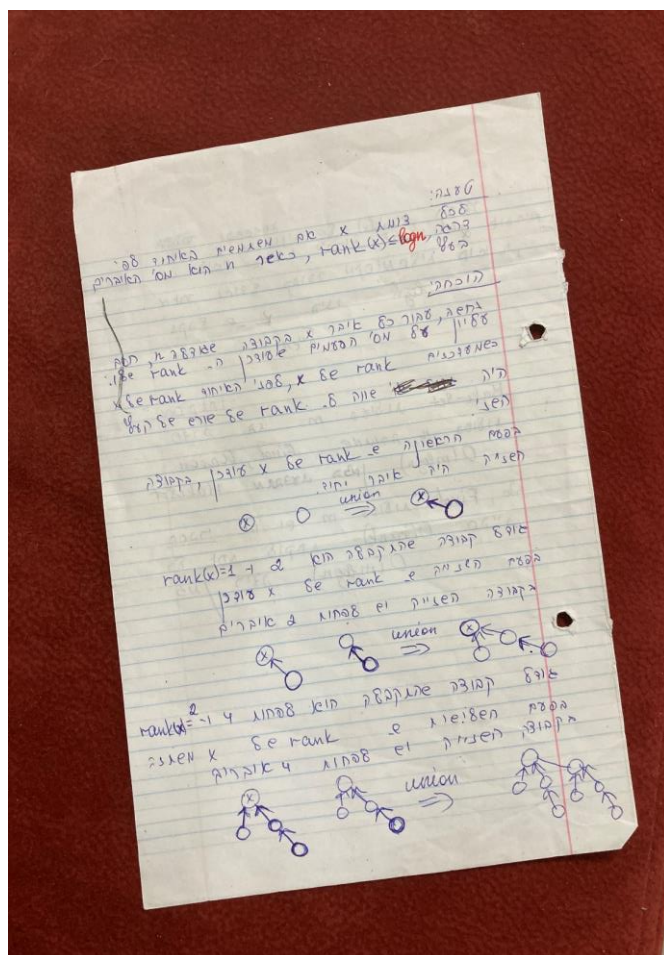 טענה:
לכל צומת x אם משתמשים באיחוד לפי
דרגה, rank(x)≤logn, כאשר n הוא מס' האיברים
בעץ
הוכחה:
נחשב, עבור כל איבר x בקבוצה שגודלה n, חסם
עליון על מס' הפעמים שעודכן ה- rank שלו.
כשמעדכנים rank של x, לפני האיחוד rank של x
היה שווה ל- rank של שורש של העץ
השני
בפעם הראשונה ש rank של x עודכן, בקבוצה
השנייה היה איבר יחיד.
x union ⇒ x
גודל קבוצה שהתקבלה הוא 2 ו- rank(x)=1
בפעם השנייה ש rank של x עודכן
בקבוצה השנייה יש לפחות 2 איברים
x union ⇒ x
גודל קבוצה שהתקבלה הוא לפחות 4 ו- rank(x)=2
בפעם השלישית ש rank של x משתנה
בקבוצה השנייה יש לפחות 4 איברים
x union ⇒